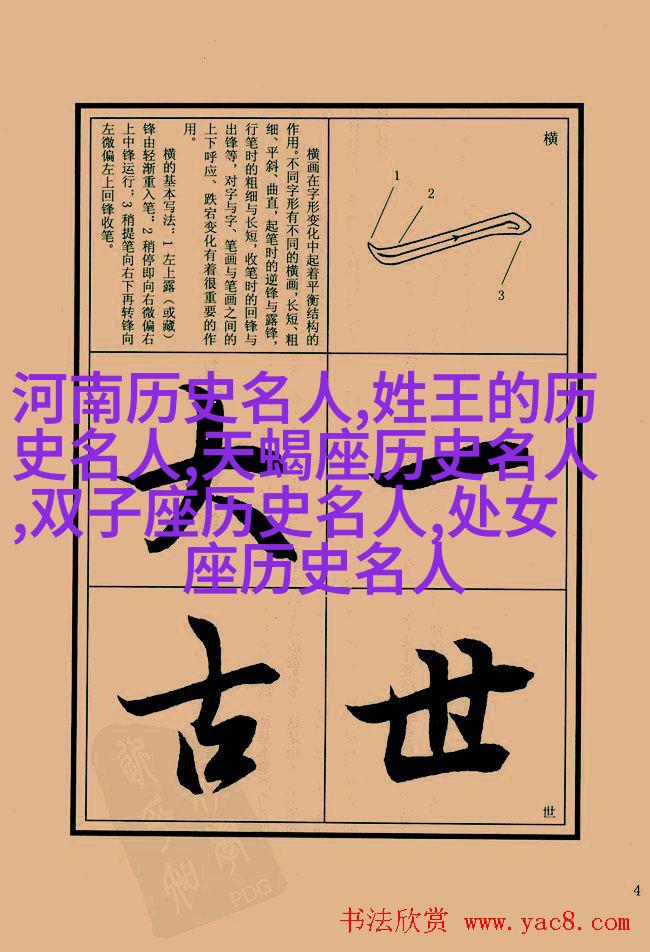 横
1
2
3
横画在字形变化中起着平衡结构的
作用。不同字形有不同的横画，长短、粗
细、平斜、曲直，起笔时的逆锋与露锋，
行笔时的粗细与长短，收笔时的回锋与
出锋等，对字与字、笔画与笔画之间的
上下呼应、跌宕变化有着很重要的作
用。
横的基本写法：1 左上露（或藏）
锋由轻渐重入笔；2 稍停即向右微偏右
上中锋运行；3 稍提笔向右下再转锋向
左微偏左上回锋收笔。
河南历史名人,姓王的历
史名人,天蝎座历史名人
,双子座历史名人,处女
座历史名人
一
大
世
古
世
PDG
4
书法欣赏 www.yac8.com